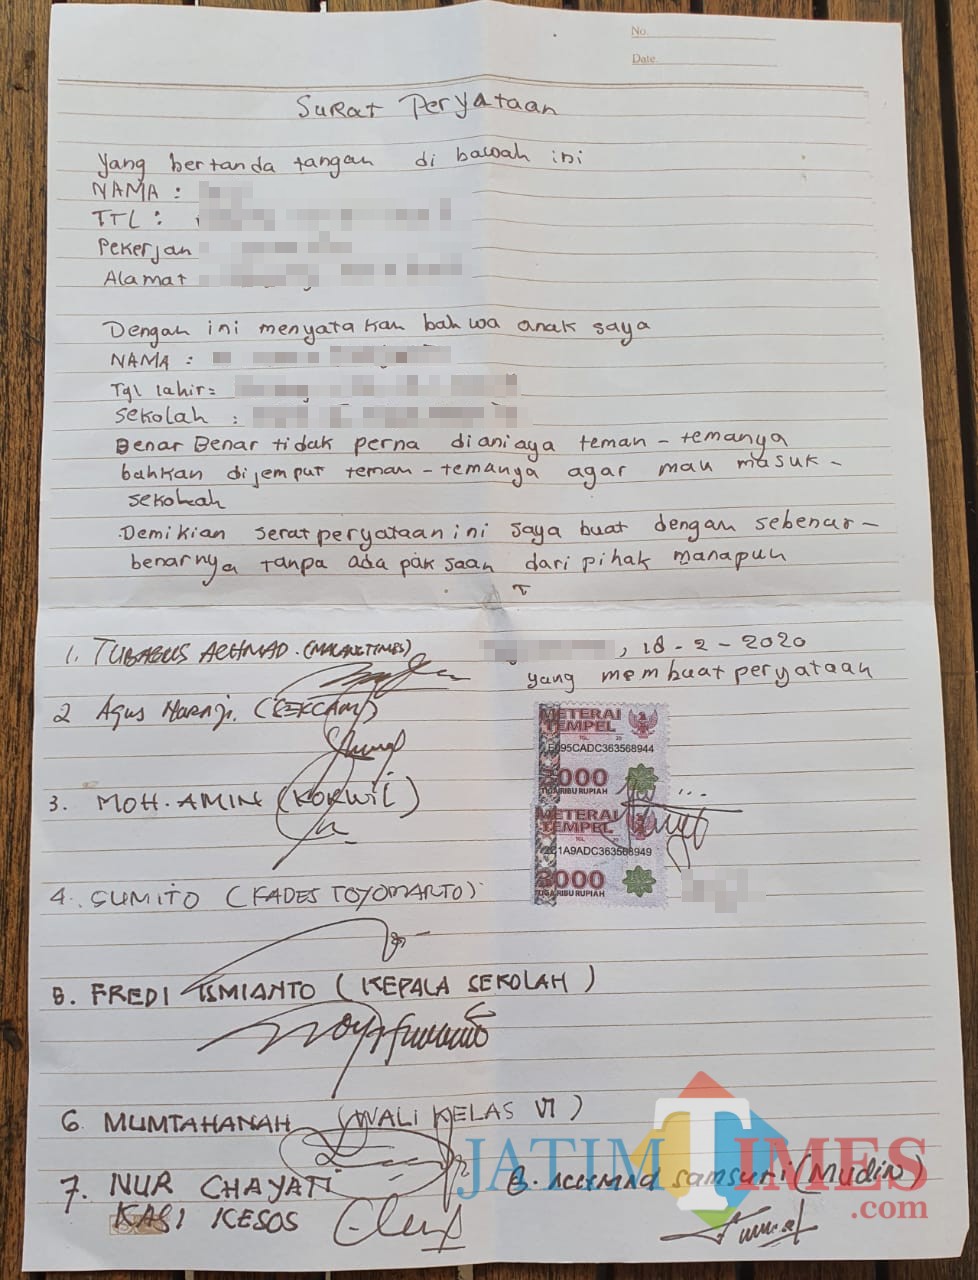 No.
Date.
Surat Peryataan
Yang bertanda tangan di bawah ini
NAMA :
TTL :
Pekerjan
Alamat
Dengan ini menyatakan bahwa anak saya
NAMA :
Tgl lahir:
Sekolah :
Benar Benar tidak perna dianiaya teman-temanya
bahkan dijemput teman-temanya agar mau masuk-
sekolah
Demikian serat peryataan ini saya buat dengan sebenar-
benarnya tanpa ada paksaan dari pihak manapun
, 18-2-2020
yang membuat peryataan
1. TUBAGUS ACHMAD. (MALANGTIMES)
2 Agus
3. MOH. AMIN (KORWIL)
4. SUMITO (KADES TOYOMARTO)
METERAI
TEMPEL
TGL. 20
095CADC363568944
3000
TIGA RIBU RUPIAH
METERAI
TEMPEL
TGL.
1A9ADC363568949
3000
TIGA RIBU RUPIAH
5. FREDI ISMIANTO (KEPALA SEKOLAH)
6 MUMTAHANAH (WALI KELAS VI)
7. NUR CHAYATI
KASI KESOS
8. ACHMAD Samsuri (Mudin)
JATIMTIMES
.com